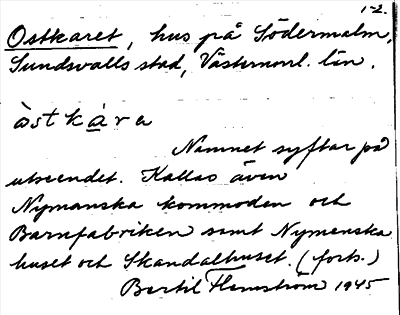 1-2.
Ostkaret, hus på Södermalm,
Sundsvalls stad, Västernorrl. län.
òstkàra
Namnet syftar på
utseendet. Kallas även
Nymanska kommoden och
Barnfabriken samt Nymanska
huset och Skandalhuset. (forts.)
Bertil Flemström 1945